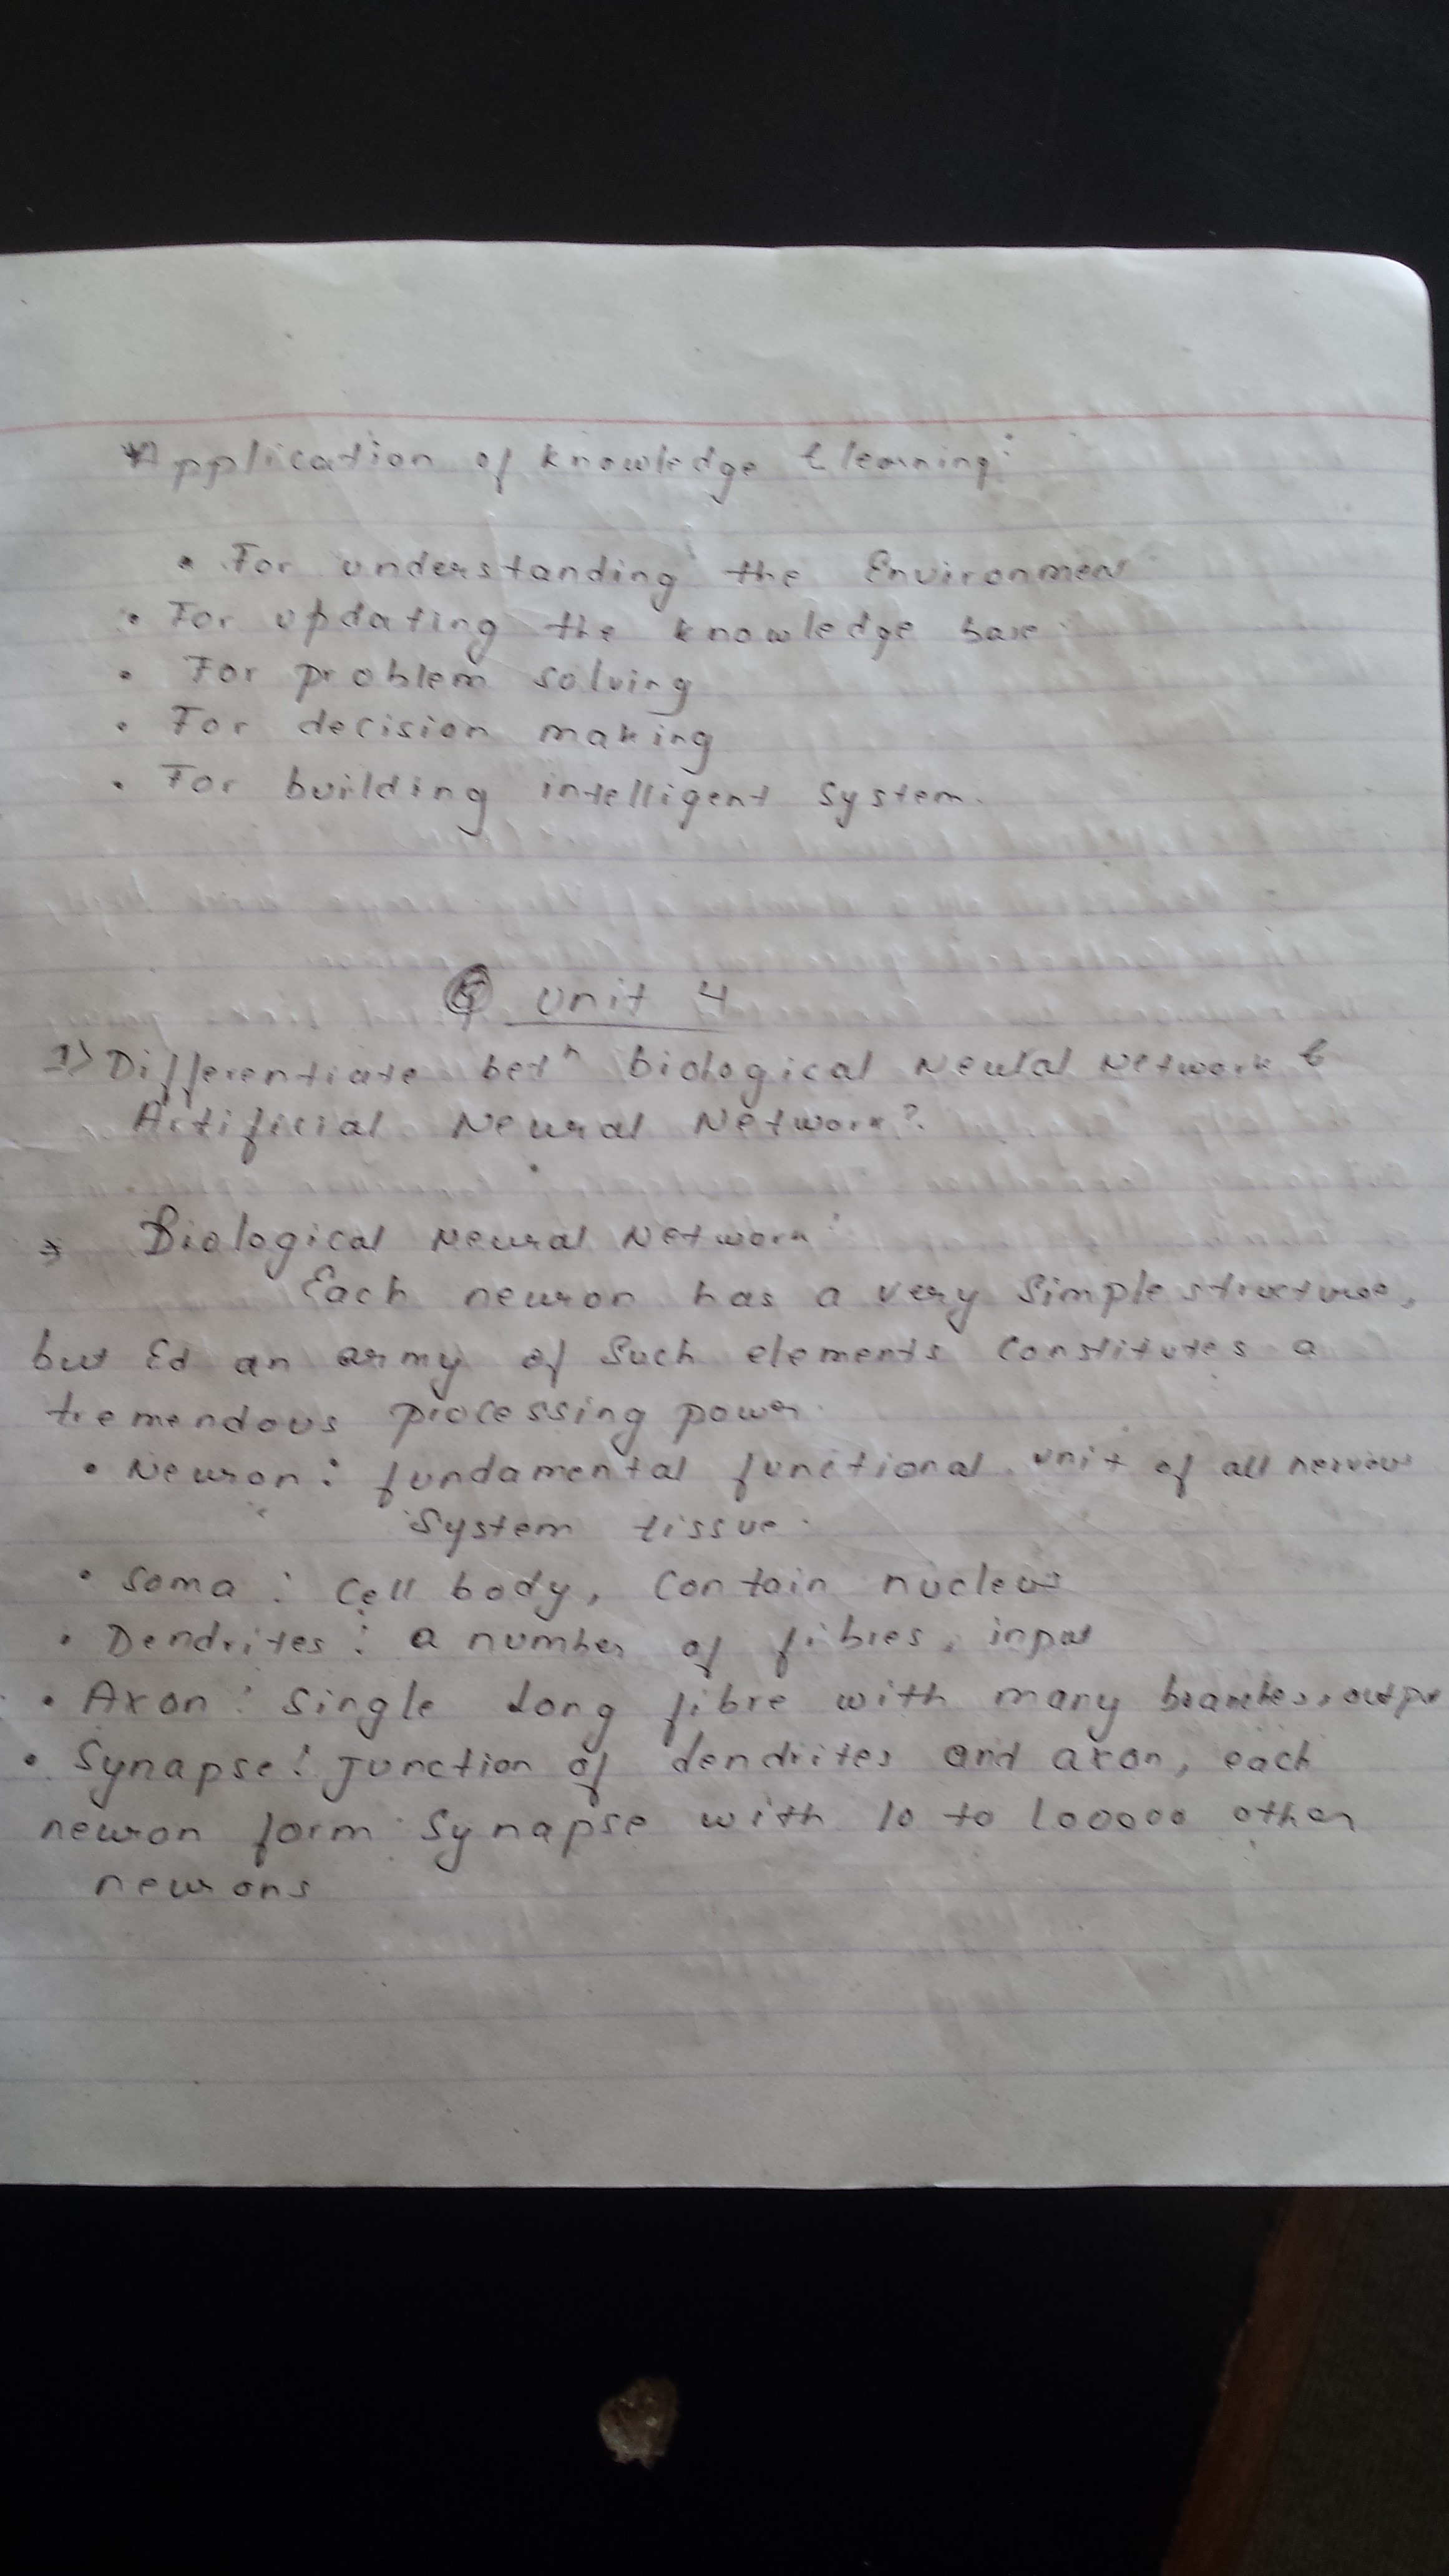 *Application of knowledge & learning:
• For understanding the Environment
• For updating the knowledge base
• For problem solving
• For decision making
• For building intelligent system.
Unit 4
1) Differentiate betⁿ biological Neural Network &
Artificial Neural Network?
⇒ Biological Neural Network:
Each neuron has a very simple structure,
but an army of such elements constitutes a
tremendous processing power.
• Neuron: fundamental functional unit of all nervous
system tissue.
• soma: cell body, contain nucleus
• Dendrites: a number of fibres, input
• Axon: single long fibre with many branches, output
• Synapse: junction of dendrites and axon, each
neuron form synapse with 10 to 100000 other
neurons